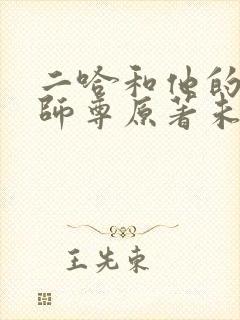 二哈和他的
師尊原著未
王先東